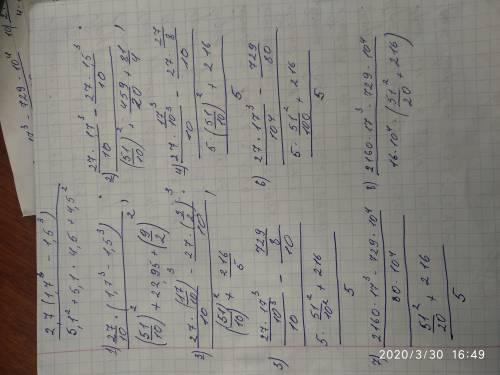 17³ − 729 · 10⁴
27(1,7³ − 1,5³)
5,1² + 5,1 · 4,5 + 4,5²
1) 27/10 · (1,7³ − 1,5³)
(51/10)² + 22,95 + (9/2)²
2) 27 · 17³/10 − 27 · 1,5³/10
(51/10)² + 459/20 + 81/4
3) 27 · (17/10)³/10 − 27 · (3/2)³/10
(51/10)² + 216/5
4) 27 · 17³/10³/10 − 27 · 27/8/10
5 · (51/10)² + 216
5
5) 27 · 17³/10³/10 − 729/8/10
5 · 51²/10² + 216
5
6) 27 · 17³/10⁴ − 729/80
5 · 51²/100 + 216
5
7) 2160 · 17³ · 729 · 10⁴
80 · 10⁴
51²/20 + 216
5
8) 2160 · 17³ · 729 · 10⁴
16 · 10⁴ · (51²/20 + 216)
2020/3/30 16:49